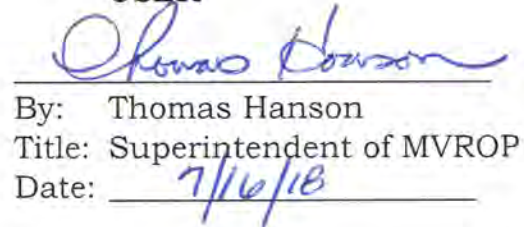 Thomas Hanson
By: Thomas Hanson
Title: Superintendent of MVROP
Date: 7/16/18